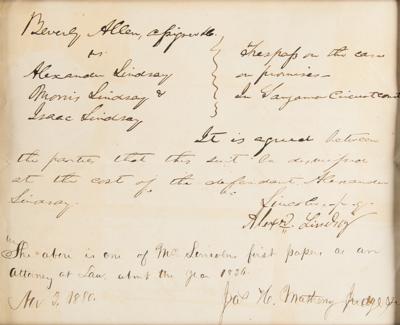 Beverly Allen, assignee &c.
vs
Alexander Lindsay
Morris Lindsay &
Isaac Lindsay
Trespass on the case
on promises—
In Sangamo Circuit Court
It is agreed between
the parties that this suit be dismissed
at the cost of the defendant, Alexander
Lindsay.
Lincoln, p.q.
Alexr. Lindsay
"The above is one of Mr Lincolns first papers as an
attorney at Law. about the year 1836.
Nov 3. 1880.
Jas H. Matheny Judge &c